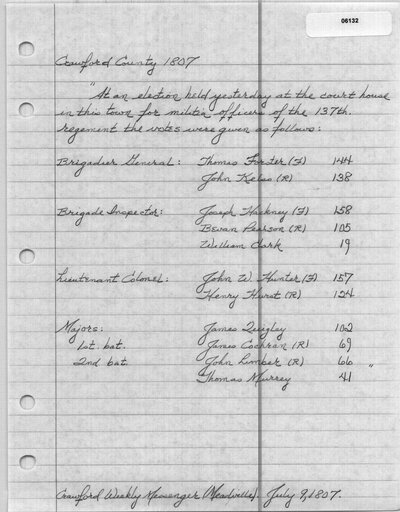 06132
Crawford County 1807
"At an election held yesterday at the court house
in this town for militia officers of the 137th.
regement the votes were given as follows:
Brigadier General: Thomas Forster (F) 144
John Kelso (R) 138
Brigade Inspector: Joseph Hackney (F) 158
Bevan Pearson (R) 105
William Clark 19
Lieutenant Colonel: John W. Hunter (F) 157
Henry Hurst (R) 124
Majors: James Quigley 102
1st. bat. James Cochran (R) 69
2nd bat. John Limber (R) 66 "
Thomas Murrey 41
Crawford Weekly Messenger (Meadville). July 9, 1807.